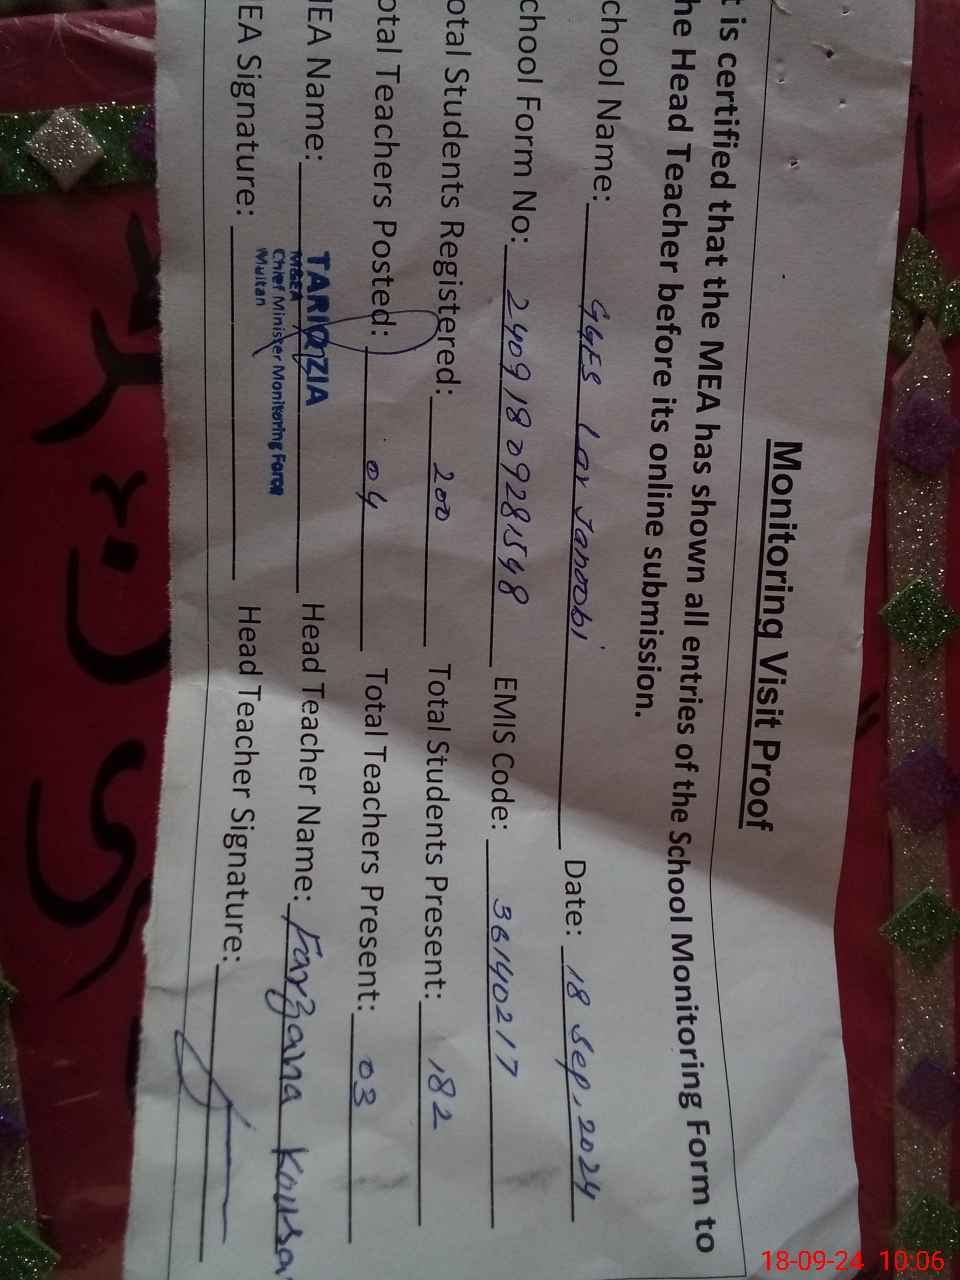 Monitoring Visit Proof
t is certified that the MEA has shown all entries of the School Monitoring Form to
he Head Teacher before its online submission.
chool Name: GGES Lar Janoobi Date: 18 Sep, 2024
chool Form No: 24091809281548 EMIS Code: 36140217
otal Students Registered: 200 Total Students Present: 182
otal Teachers Posted: 04 Total Teachers Present: 03
MEA Name: TARIQ ZIA Head Teacher Name: Farzana Kousa
M&EA
Chief Minister Monitoring Force
Multan
EA Signature: Head Teacher Signature:
18-09-24 10:06